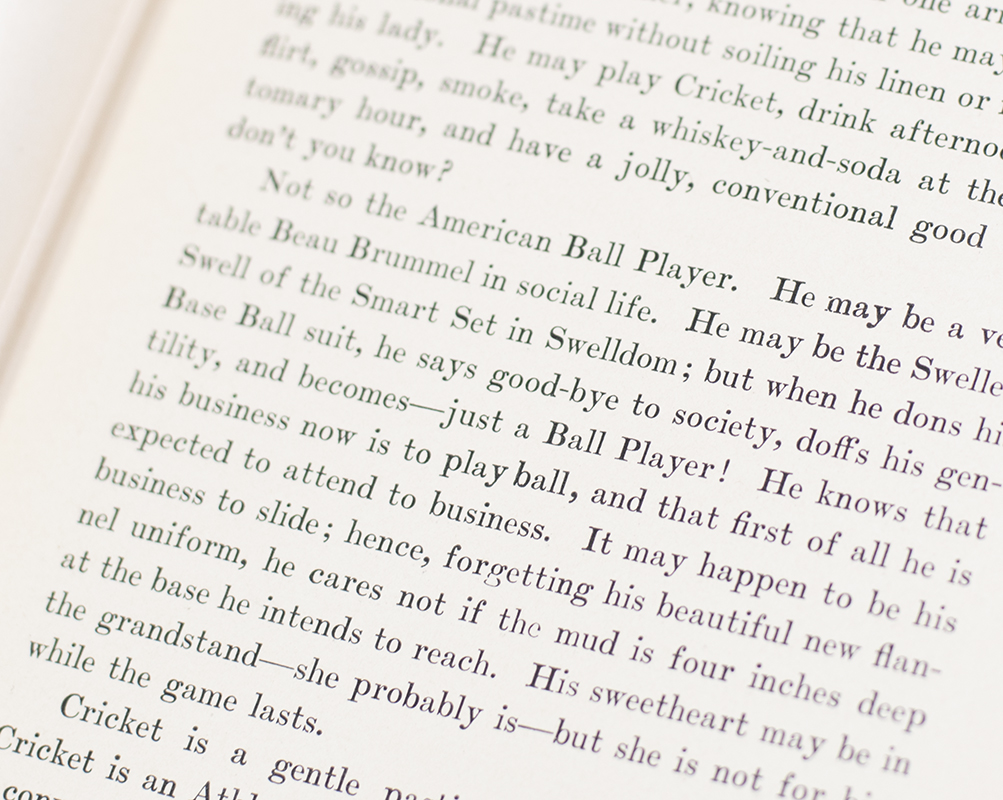 one
knowing that he may
pastime without soiling his linen or
ing his lady. He may play Cricket, drink
flirt, gossip, smoke, take a whiskey-and-soda at the
tomary hour, and have a jolly, conventional good
don't you know?
Not so the American Ball Player. He may be a
table Beau Brummel in social life. He may be the
Swell of the Smart Set in Swelldom; but when he dons
Base Ball suit, he says good-bye to society, doffs his gen-
tility, and becomes—just a Ball Player! He knows that
his business now is to play ball, and that first of all he is
expected to attend to business. It may happen to be his
business to slide; hence, forgetting his beautiful new flan-
nel uniform, he cares not if the mud is four inches deep
at the base he intends to reach. His sweetheart may be in
the grandstand—she probably is—but she is not for
while the game lasts.
Cricket is a gentle
Cricket is an